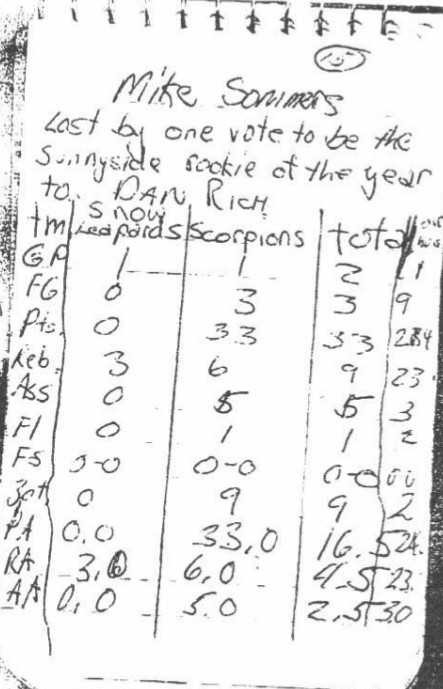 Mike Sommers
Lost by one vote to be the
Sunnyside rookie of the year
to DAN RICH
tm Snow Leopards Scorpions total
GP 1 1 2 1
FG 0 3 3 9
Pts. 0 33 33
Reb. 3 6 9 23
Ass 0 5 5 3
Fl 0 1 1 2
FS 0-0 0-0 0-0
3pt. 0 9 9 2
PA 0.0 33.0 16.5 24.
RA 3.0 6.0 4.5 23.
AA 0.0 5.0 2.5 30